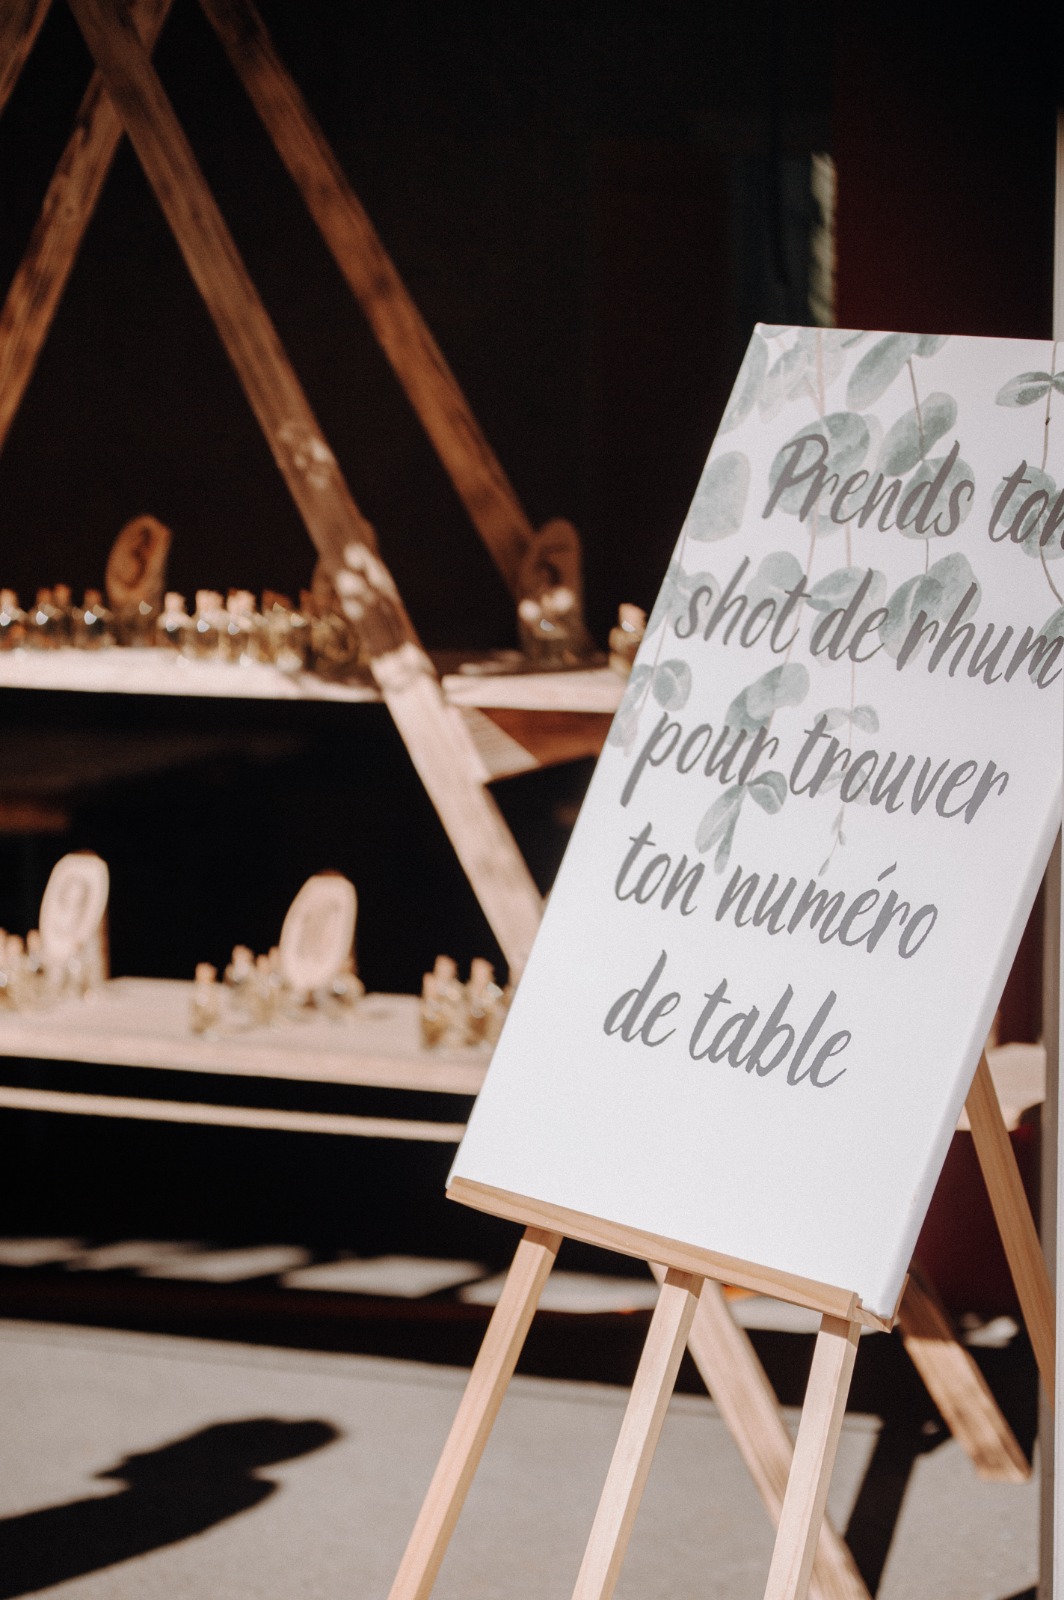 Prends ton
shot de rhum
pour trouver
ton numéro
de table
3